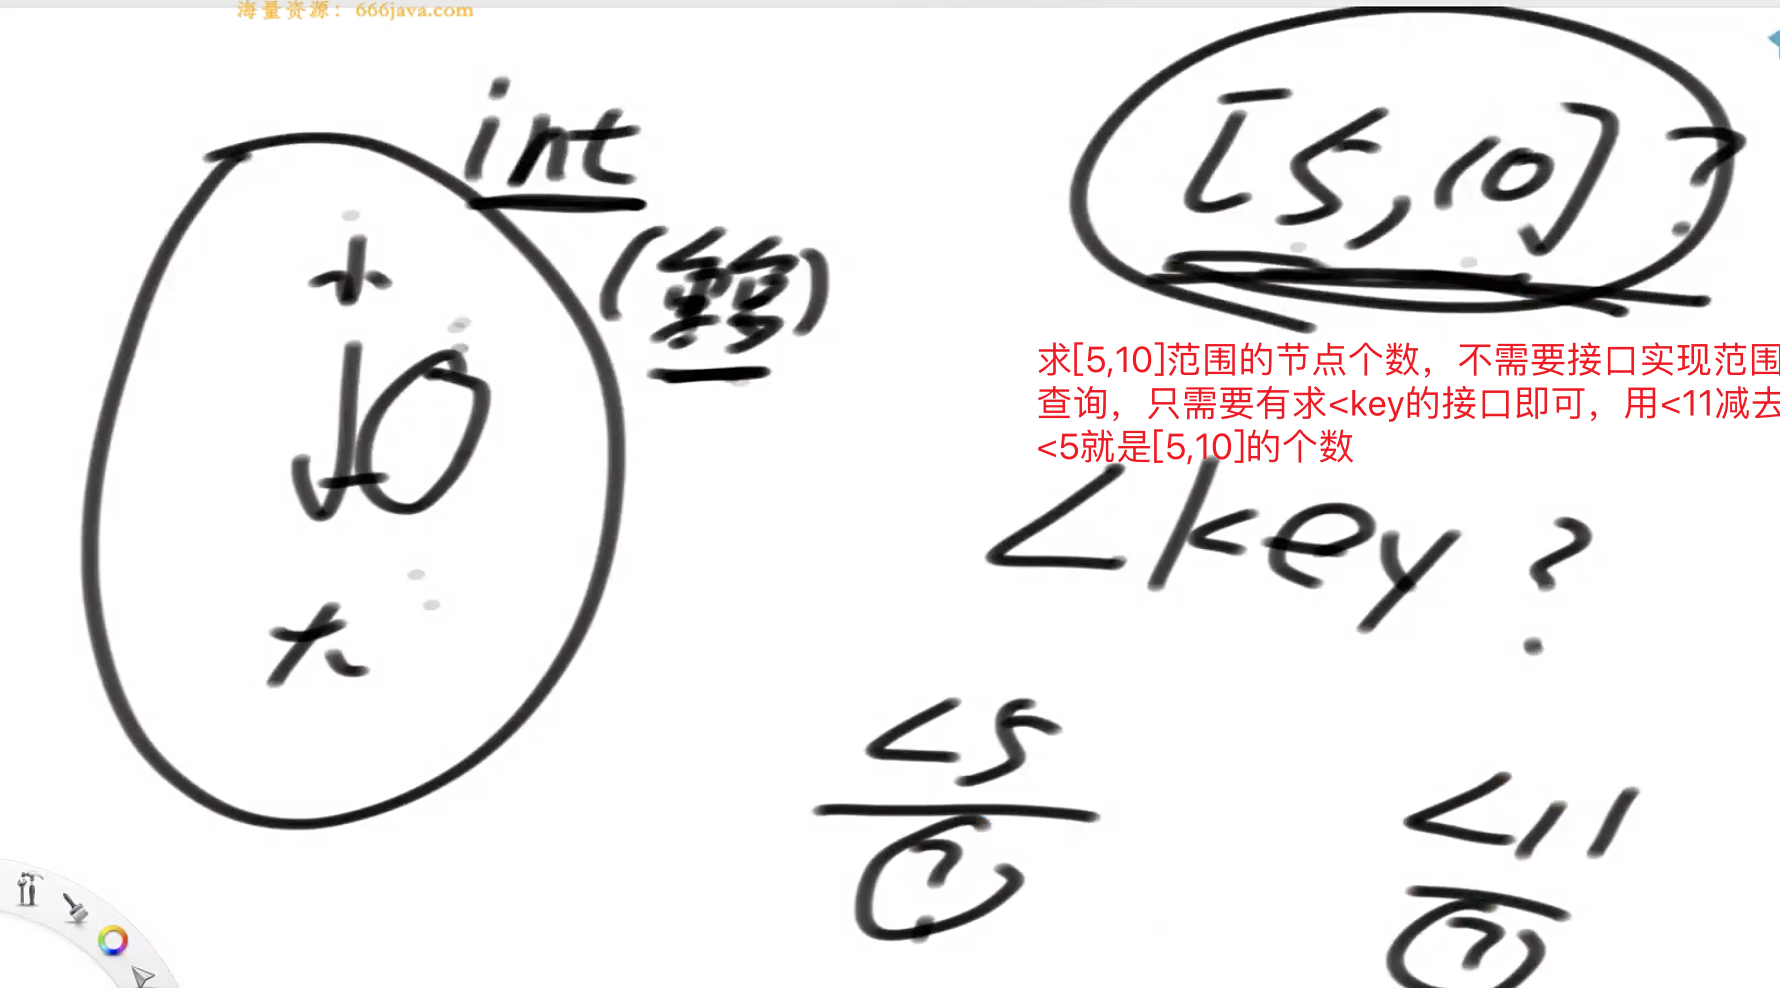 海量资源：666java.com
int
[5,10]?
加
10
大
求[5,10]范围的节点个数，不需要接口实现范围
查询，只需要有求<key的接口即可，用<11减去
<5就是[5,10]的个数
<key?
<5
?
<11
?